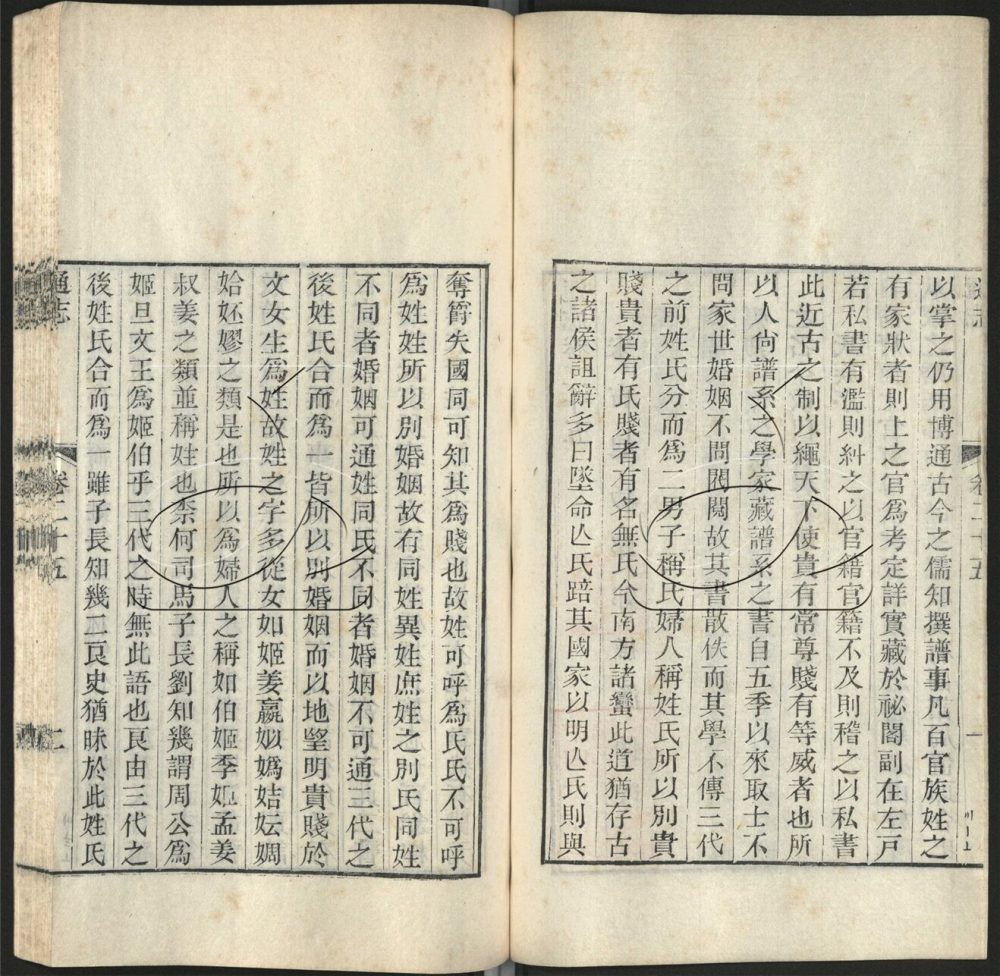 以掌之仍用博通古今之儒知撰譜事凡百官族姓之
有家狀者則上之官爲考定詳實藏於祕閣副在左戸
若私書有濫則糾之以官籍官籍不及則稽之以私書
此近古之制以繩天下使貴有常尊賤有等威者也所
以人尙譜系之學家藏譜系之書自五季以來取士不
問家世婚姻不問閥閱故其書散佚而其學不傳三代
之前姓氏分而爲二男子稱氏婦人稱姓氏所以別貴
賤貴者有氏賤者有名無氏今南方諸蠻此道猶存古
之諸侯詛辭多曰墜命亾氏踣其國家以明亾氏則與
奪爵失國同可知其爲賤也故姓可呼爲氏氏不可呼
爲姓姓所以別婚姻故有同姓異姓庶姓之別氏同姓
不同者婚姻可通姓同氏不同者婚姻不可通三代之
後姓氏合而爲一皆所以別婚姻而以地望明貴賤於
文女生爲姓故姓之字多從女如姬姜嬴姒嬀姞妘婤
姶㛂嫪之類是也所以爲婦人之稱如伯姬季姬孟姜
叔姜之類並稱姓也柰何司馬子長劉知幾謂周公爲
姬旦文王爲姬伯乎三代之時無此語也良由三代之
後姓氏合而爲一雖子長知幾二良史猶昧於此姓氏
通志
卷二十五
二